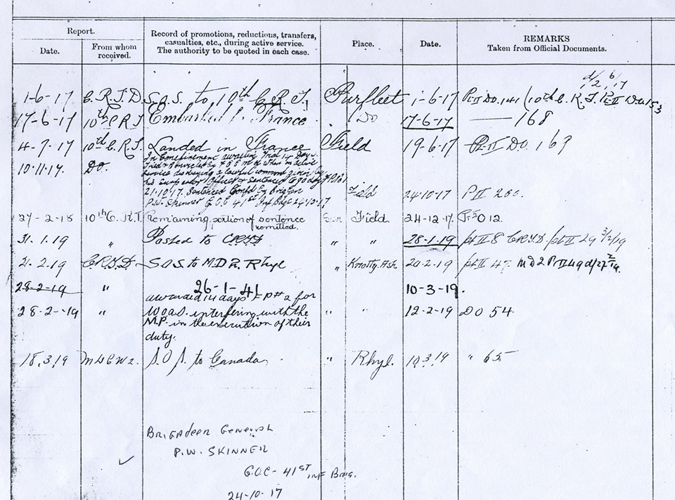 Report.
Date.
From whom received.
Record of promotions, reductions, transfers, casualties, etc., during active service. The authority to be quoted in each case.
Place.
Date.
REMARKS
Taken from Official Documents.
1-6-17 C.R.T.D. S.O.S. to 10th C.R.T. Purfleet 1-6-17 Pt II DO. 141 (10th C.R.T. Pt II
17-6-17 10th C.R.T. Embarked France Do 17-6-17 168
4-7-17 10th C.R.T. Landed in France Field 19-6-17 Pt. II DO. 169
10-11-17. DO. In Confinement awaiting Trial
Tried
21-10-17. Sentence
P.W. Skinner G.O.C. 41st Inf Bde 24-10-17 Field 24-10-17 Pt II 200.
27-2-18 10th C.R.T. Remaining portion of sentence remitted. Field 24-12-17
31.1.19 " Posted to CRTD " " 28-1-19 pt II 8 CRTD pt II 29
21.2.19 CRTD S.O.S to M.D 2, Rhyl " Knotty Ash 20-2-19 pt II 47
28-2-19 " 26-1-41 10-3-19.
awarded 14 days F P No 2 for
28-2-19 " W.O.A.S. interfering with the 12-2-19 DO 54
M.P. in the execution of their
duty.
18.3.19 S.O.S. to Canada. " Rhyl. 10.3.19 " 65
BRIGADEER GENERAL
P.W. SKINNER
G.O.C - 41ST INF BRIG.
24-10-17